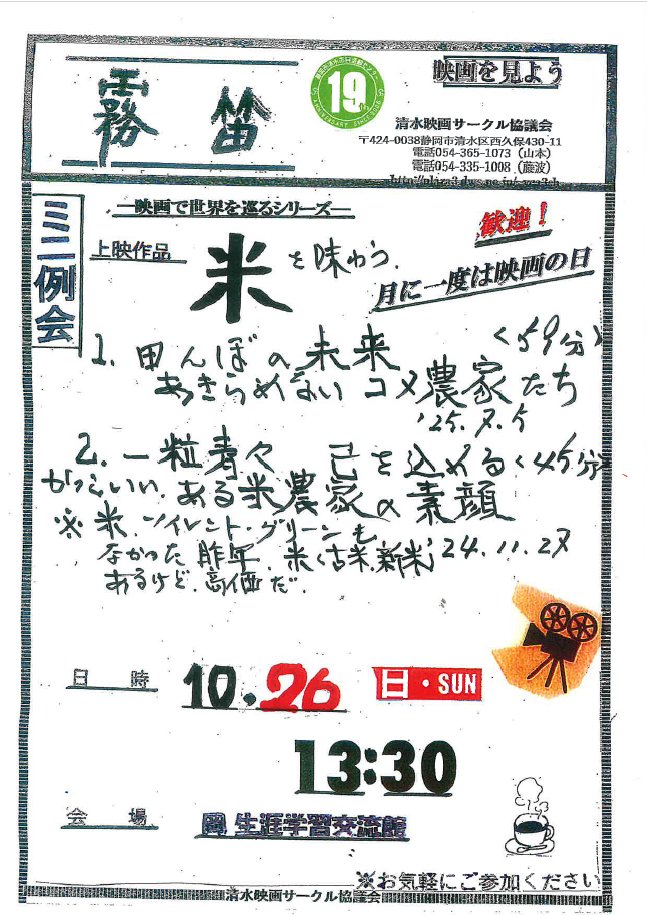 霧笛
19
映画を見よう
清水映画サークル協議会
〒424-0038静岡市清水区西久保430-11
電話054-365-1073（山本）
電話054-335-1008（藤波）
ミニ例会
―映画で世界を巡るシリーズ―
歓迎！
上映作品
米を味わう。
月に一度は映画の日
1. 田んぼの未来 〈59分〉
あきらめないコメ農家たち
'25.7.5
2. 一粒青々 己を込める〈45分〉
がっこいい、ある米農家の素顔
※米、ソイレント・グリーンも
なかった昨年、米〈古米、新米〉'24.11.27
あるけど、高価だ。
日時
10.26
日・SUN
13:30
会場
岡 生涯学習交流館
※お気軽にご参加ください
清水映画サークル協議会